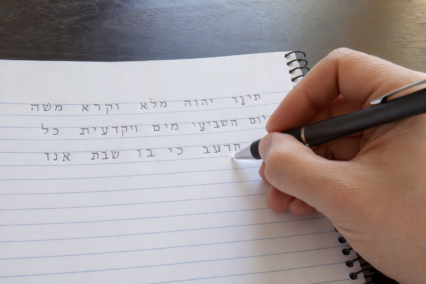 יהוה מלא וקרא משה
יום השביעי מים ויקדעית כל
כי בו שבת אנו